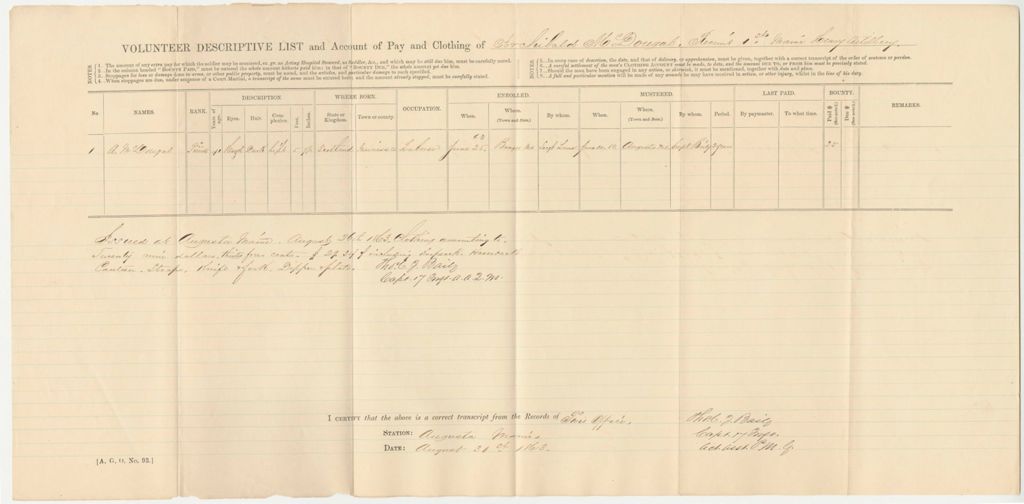 VOLUNTEER DESCRIPTIVE LIST and Account of Pay and Clothing of Archibald McDougal, 1st Maine Heavy Artillery.
NOTES
1. The amount of any extra pay for which the soldier may be mustered, as Acting Hospital Steward, as Saddler, &c., and which may be still due him, must be carefully noted.
2. In the column headed "BOUNTY PAID," must be entered the whole amount hitherto paid him; in that of "BOUNTY DUE," the whole amount yet due him.
3. Stoppages for loss or damage done to arms, or other public property, must be noted, and the articles, and particular damage to each specified.
4. When stoppages are due, under sentence of a Court-Martial, a transcript of the same must be entered here; and the amount already stopped, must be carefully stated.
NOTES
5. In every case of desertion, the date, and that of delivery, or apprehension, must be given, together with a correct transcript of the order of sentence or pardon.
6. A careful settlement of the man's CLOTHING ACCOUNT must be made, to date, and the amount DUE TO, or FROM him must be precisely stated.
7. Should the man have been engaged in any action, or skirmish, it must be mentioned, together with date and place.
8. A full and particular mention will be made of any wounds he may have received in action, or other injury, whilst in the line of his duty.
No
NAMES.
RANK.
Years of age.
DESCRIPTION.
Eyes. Hair. Complexion. Feet. Inches.
WHERE BORN.
State or Kingdom. Town or county.
OCCUPATION.
ENROLLED.
When. Where. (Town and State.) By whom.
MUSTERED.
When. Where. (Town and State.) By whom. Period.
LAST PAID.
By paymaster. To what time.
BOUNTY.
Paid $ Due $
REMARKS.
1 A. McDougal Scotland Laborer June 25 Bangor Me Augusta Me 25
Issued at Augusta Maine August 31st 1863. Clothing amounting to
Twenty nine dollars cents. including Haversack
Canteen, Straps, Knife & fork, Dipper & plate.
Tho. C. J. Baily
Capt. 17 Infy. A. A. Q. M.
I CERTIFY that the above is a correct transcript from the Records of This Office.
STATION: Augusta Maine
DATE: August 31st 1863.
Tho. C. J. Baily
Capt. 17 Infy.
Act. Asst. P. M. G.
[A. G. O. No. 92.]